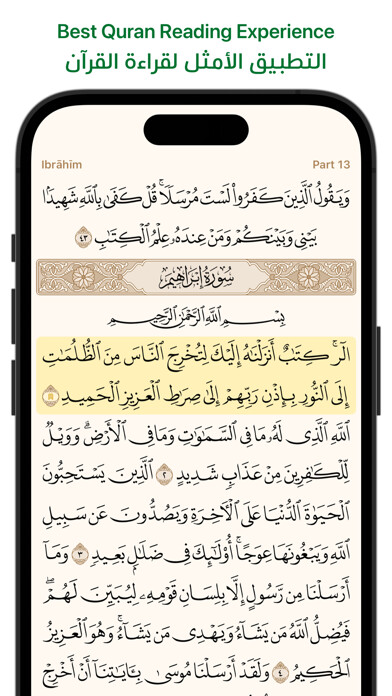 Best Quran Reading Experience
التطبيق الأمثل لقراءة القرآن
Ibrāhīm
Part 13
وَيَقُولُ ٱلَّذِينَ كَفَرُواْ لَسۡتَ مُرۡسَلٗاۚ قُلۡ كَفَىٰ بِٱللَّهِ شَهِيدَۢا
بَيۡنِي وَبَيۡنَكُمۡ وَمَنۡ عِندَهُۥ عِلۡمُ ٱلۡكِتَٰبِ ٤٣
سُورَةُ إِبۡرَاهِيمَ
بِسۡمِ ٱللَّهِ ٱلرَّحۡمَٰنِ ٱلرَّحِيمِ
الٓرۚ كِتَٰبٌ أَنزَلۡنَٰهُ إِلَيۡكَ لِتُخۡرِجَ ٱلنَّاسَ مِنَ ٱلظُّلُمَٰتِ
إِلَى ٱلنُّورِ بِإِذۡنِ رَبِّهِمۡ إِلَىٰ صِرَٰطِ ٱلۡعَزِيزِ ٱلۡحَمِيدِ ١
ٱللَّهِ ٱلَّذِي لَهُۥ مَا فِي ٱلسَّمَٰوَٰتِ وَمَا فِي ٱلۡأَرۡضِۗ وَوَيۡلٞ
لِّلۡكَٰفِرِينَ مِنۡ عَذَابٖ شَدِيدٍ ٢ ٱلَّذِينَ يَسۡتَحِبُّونَ
ٱلۡحَيَوٰةَ ٱلدُّنۡيَا عَلَى ٱلۡأٓخِرَةِ وَيَصُدُّونَ عَن سَبِيلِ
ٱللَّهِ وَيَبۡغُونَهَا عِوَجًاۚ أُوْلَٰٓئِكَ فِي ضَلَٰلِۭ بَعِيدٖ ٣ وَمَآ
أَرۡسَلۡنَا مِن رَّسُولٍ إِلَّا بِلِسَانِ قَوۡمِهِۦ لِيُبَيِّنَ لَهُمۡۖ
فَيُضِلُّ ٱللَّهُ مَن يَشَآءُ وَيَهۡدِي مَن يَشَآءُۚ وَهُوَ ٱلۡعَزِيزُ
ٱلۡحَكِيمُ ٤ وَلَقَدۡ أَرۡسَلۡنَا مُوسَىٰ بِـَٔايَٰتِنَآ أَنۡ أَخۡرِجۡ